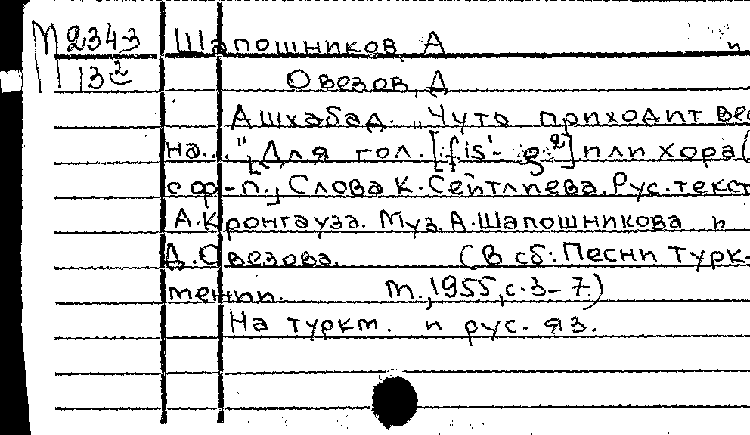 М2343 Шапошников, А и
П13² Овезов, Д
Ашхабад. „Чуть приходит вес
на..." [Для гол. [fis¹- g²] или хора (
с ф-п.], Слова К. Сейтлиева. Рус. текст
А. Кронгауза. Муз. А. Шапошникова и
Д. Овезова. (В сб: Песни Турк-
мении. М., 1955, с. 3-7)
На туркм. и рус. яз.